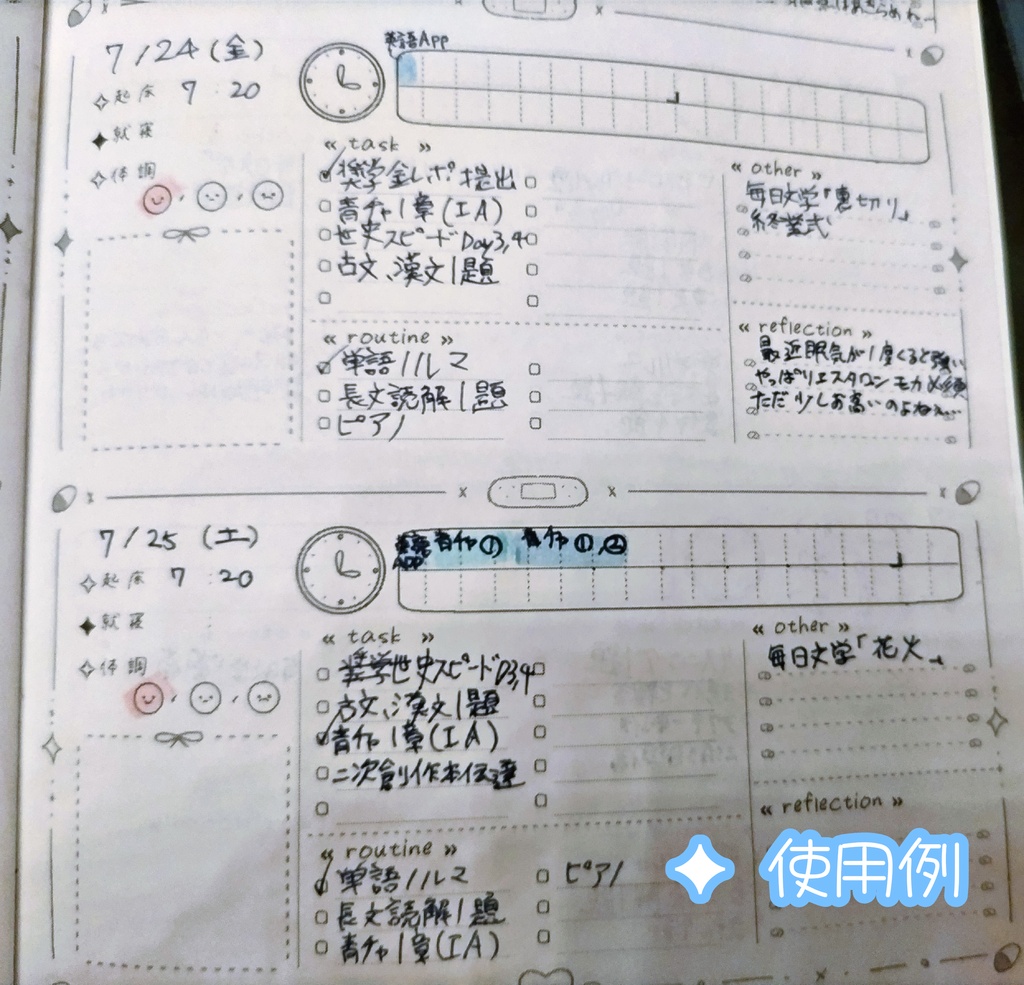 7/24(金)
起床 7:20
就寝
体調
英語App
« task »
奨学金レポ提出
青チャ1章(IA)
世史スピードDay3,4
古文、漢文1題
« routine »
単語ノルマ
長文読解1題
ピアノ
« other »
毎日文学「裏切り」
終業式
« reflection »
最近眠気が1度くると強い
やっぱりエスタロンモカ必須
ただ少しお高いのよねぇ…
7/25(土)
起床 7:20
就寝
体調
英語APP 青チャ① 青チャ①,②
« task »
世史スピードD3,4
古文、漢文1題
青チャ1章(IA)
二次創作本伝達
« routine »
単語ノルマ
長文読解1題
青チャ1章(IA)
ピアノ
« other »
毎日文学「花火」
« reflection »
使用例